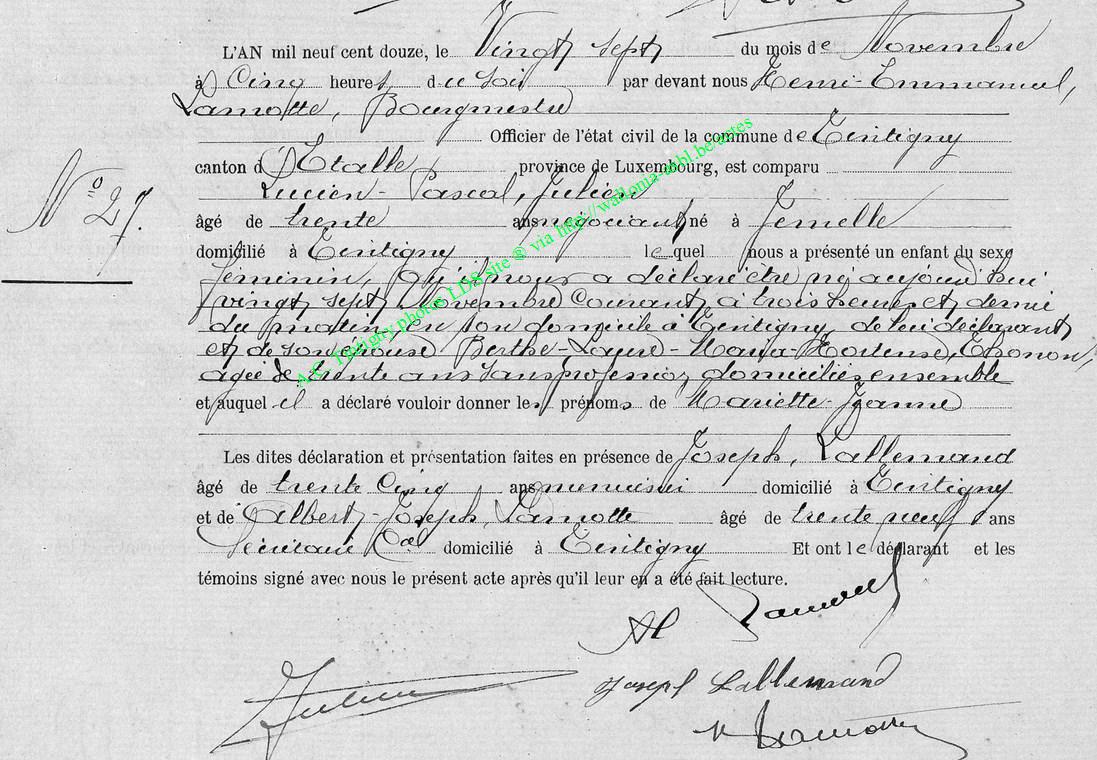 L'AN mil neuf cent douze, le Vingt sept du mois de Novembre
à Cinq heures du soir par devant nous Henri-Emmanuel,
Lamotte, Bourgmestre
Officier de l'état civil de la commune de Tintigny
canton d'Etalle province de Luxembourg, est comparu
Lucien-Pascal, Julien
N° 27.
âgé de trente ans négociant né à Jemelle
domicilié à Tintigny lequel nous a présenté un enfant du sexe
féminin, qu'il nous a déclaré être né aujourd'hui
vingt sept Novembre Courant à trois heures et demie
du matin, en son domicile à Tintigny, de lui déclarant
et de son épouse Berthe-Laure-Maria-Hortense, Thonon,
agée de trente ans sans profession, domiciliés ensemble
et auquel il a déclaré vouloir donner les prénoms de Mariette-Jeanne
Les dites déclaration et présentation faites en présence de Joseph, Lallemand
âgé de trente Cinq ans menuisier domicilié à Tintigny
et de Albert-Joseph, Lamotte âgé de trente neuf ans
Secrétaire Cal domicilié à Tintigny Et ont le déclarant et les
témoins signé avec nous le présent acte après qu'il leur en a été fait lecture.
Lamotte
Julien
Joseph Lallemand
Lamotte
A.C. Tintigny photos LDS site ® via http://wallonia-asbl.be/actes